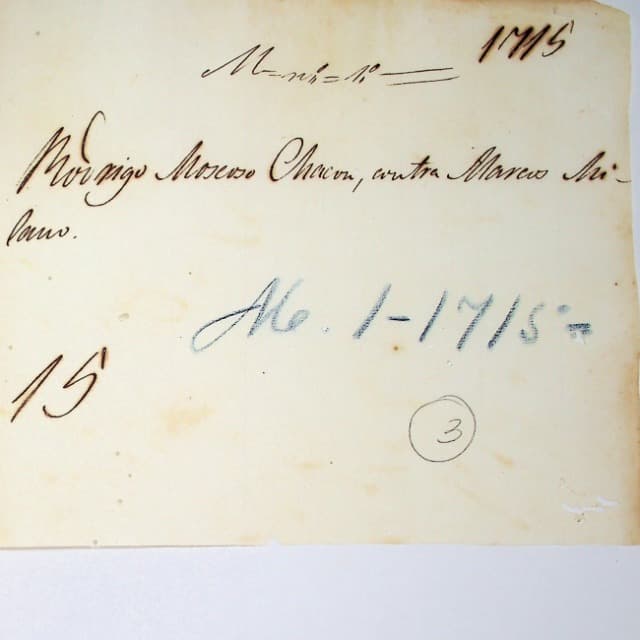 1715
M=nº=1º=
Rodrigo Moscoso Chacon, contra Marcos Mi-
lano.
1-1715=
15
3